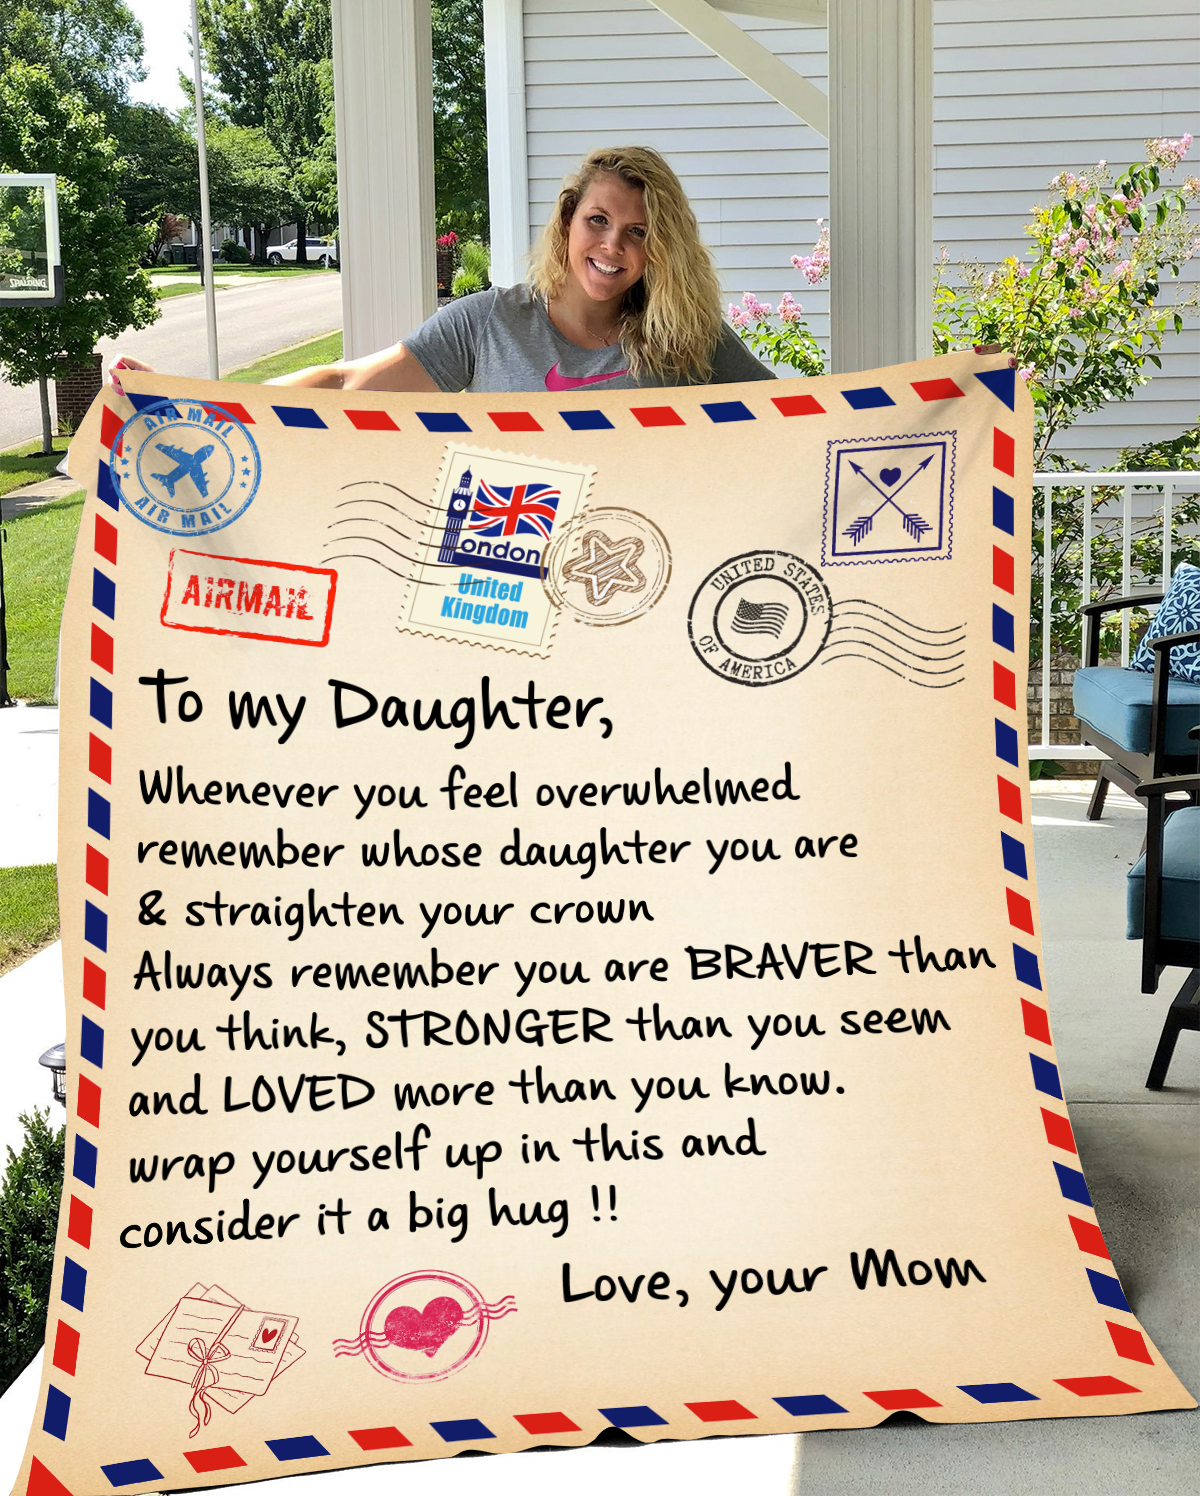 SPALDING
AIR MAIL
AIR MAIL
AIRMAIL
London
United
Kingdom
UNITED STATES
OF AMERICA
To my Daughter,
Whenever you feel overwhelmed
remember whose daughter you are
& straighten your crown
Always remember you are BRAVER than
you think, STRONGER than you seem
and LOVED more than you know.
wrap yourself up in this and
consider it a big hug !!
Love, your Mom